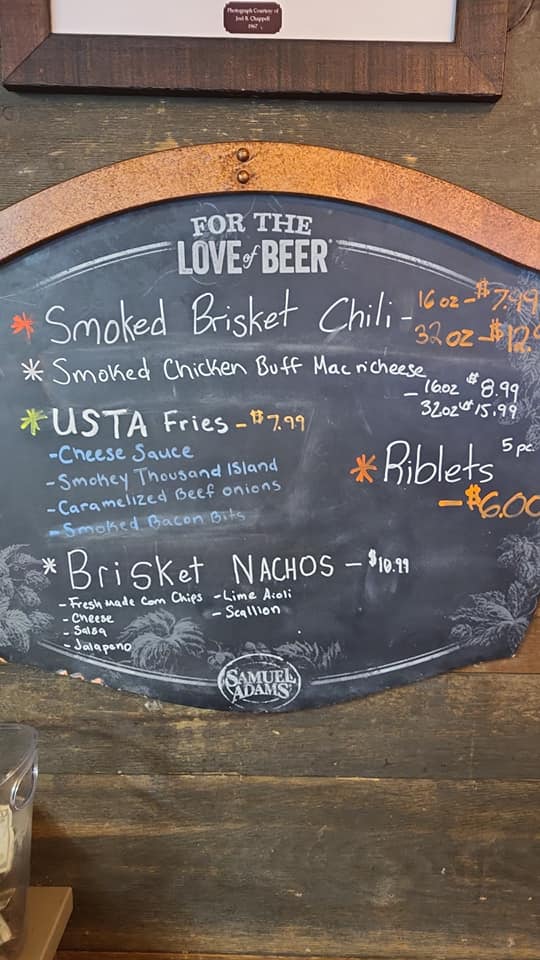 Photograph Courtesy of
Joel B. Chappell
1967
FOR THE
LOVE of BEER
* Smoked Brisket Chili - 16 oz - $7.99
32 oz - $12.9
* Smoked Chicken Buff Mac n cheese
- 16oz $8.99
32oz $15.99
* USTA Fries - $7.99
- Cheese Sauce
- Smokey Thousand Island
- Caramelized Beef onions
- Smoked Bacon Bits
* Riblets 5 pc.
- $6.00
* Brisket NACHOS - $10.99
- Fresh Made Corn Chips - Lime Aioli
- Cheese - Scallion
- Salsa
- Jalapeno
SAMUEL
ADAMS